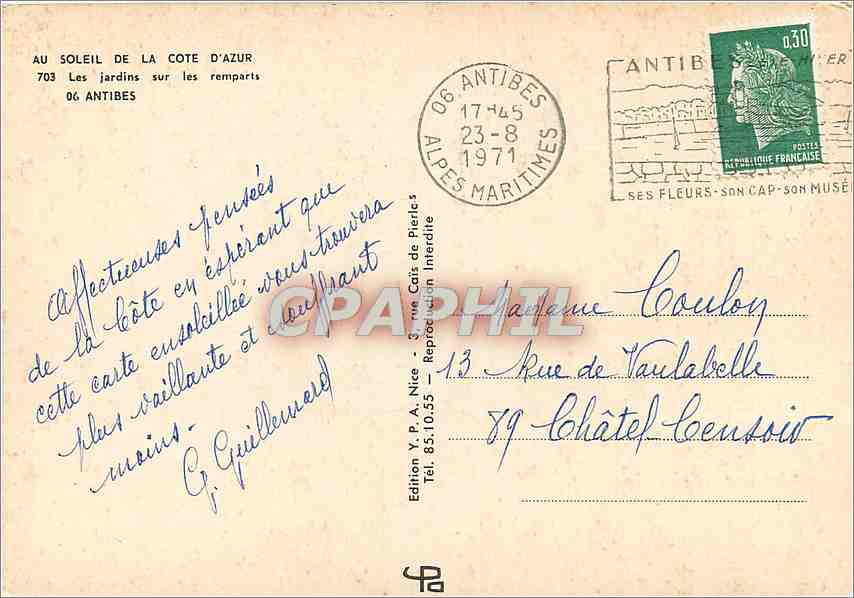 AU SOLEIL DE LA COTE D'AZUR
703 Les jardins sur les remparts
06 ANTIBES
06 ANTIBES
17H45
23-8
1971
ALPES MARITIMES
ANTIBES
SES FLEURS-SON CAP-SON MUSÉE
0,30
POSTES
RÉPUBLIQUE FRANÇAISE
Affectueuses pensées
de la Côte en espérant que
cette carte ensoleillée vous trouvera
plus vaillante et souffrant
moins.
G. Guillemard
Edition Y. P. A. Nice - 3, rue Caïs de Pierlas
Tél. 85.10.55 — Reproduction Interdite
CPAPHIL
Madame Coulon
13 Rue de Vaulabelle
89 Châtel Censoir